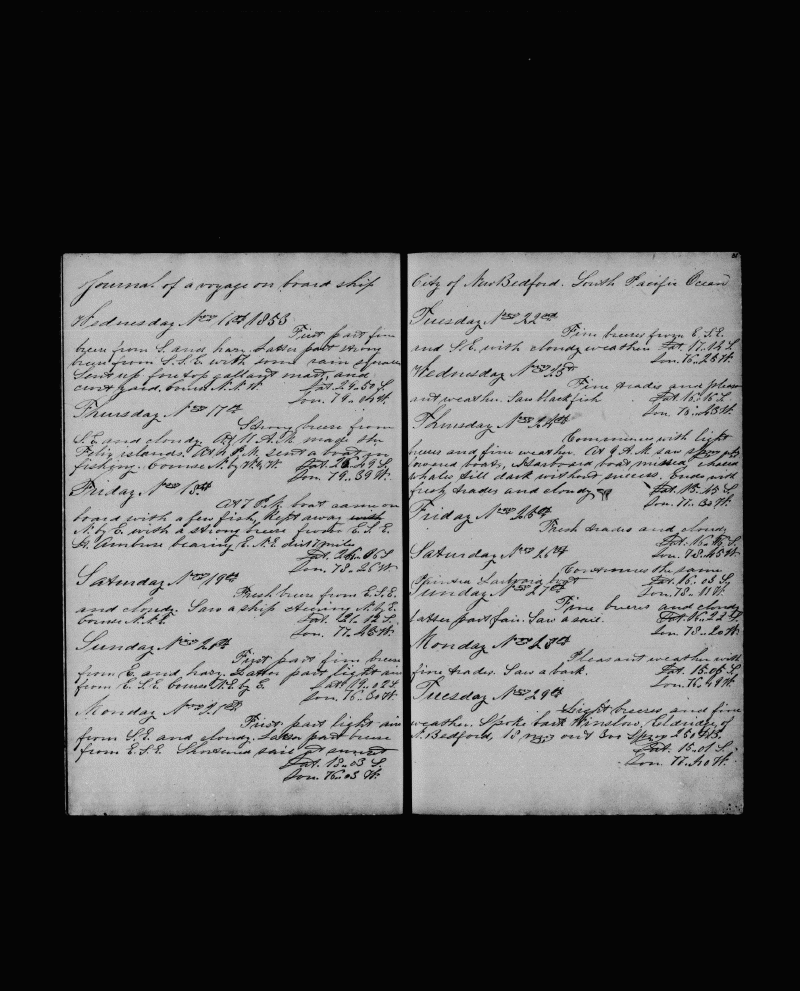 Journal of a voyage on board ship
Wednesday Nov 16th 1853
First part fine
breeze from S. and hazy. Latter part strong
breeze from S.S.E. with some rain squalls
Sent up fore top gallant mast, and
crost yard. Course N.N.W. Lat. 29.50 S.
Lon. 79.
Thursday Nov 17th
Strong breeze from
S.E and cloudy. At 11 A.M. made the
Felix islands. At 4 P.M. sent a boat on
fishing. Course N. by W. ½ W. Lat. 26.49 S.
Lon. 79.39 W.
Friday Nov 18th
At 7 P.M. boat came on
board with a few fish, kept away
N. by E. with a strong breeze from E.S.E.
St Ambrose bearing E.N.E. dist 7 miles
Lat. 24. S
Lon. 78.26 W
Saturday Nov 19th
Fresh breeze from E.S.E.
and cloudy. Saw a ship steering N. by E.
Course N.N.E. Lat. 21.12 S.
Lon. 77.
Sunday Nov 20th
First part fine breeze
from E. and hazy. Latter part light airs
from E.S.E. Course N.E. by E. Lat 19.02 S
Lon. 76.50 W.
Monday Nov 21st
First part light airs
from S.E. and cloudy. Latter part breeze
from E.S.E. Shortened sail at sunset
Lat. 18.03 S.
Lon. 76.03 W.
City of New Bedford. South Pacific Ocean
Tuesday Nov 22nd
Fine breeze from E.S.E.
and S.E. with cloudy weather Lat. 17.14 S
Lon. 76.25 W.
Wednesday Nov 23d
Fine trades and pleas
ant weather. Saw blackfish Lat. 16.16 S.
Lon. 75. W
Thursday Nov 24th
Commences with light
breeze and fine weather. At 9 A.M. saw
lowered boats, starboard boat missed, chased
whales till dark without success. Ends with
fresh trades and cloudy Lat. 15.45 S.
Lon. 77.30 W.
Friday Nov 25th
Fresh trades and cloudy
Lat. 16. S.
Lon. 78.45 W
Saturday Nov 26th
Continues the same
Larboard boat Lat. 16.03 S.
Sunday Nov 27th Lon. 78.11 W.
Fine breeze and cloudy
latter part fair. Saw a sail. Lat. 16.22 S
Lon. 78.20 W
Monday Nov 28th
Pleasant weather with
fine trades. Saw a bark. Lat. 15.05 S
Lon. 76.49 W
Tuesday Nov 29th
Light breezes, and fine
weather. Spoke bark Winslow, Eldridge, of
N. Bedford, 18 mos out 30 Sperm 250
Lat. 15.01 S.
Lon. 77.40 W.